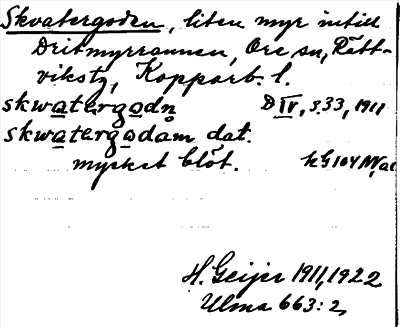 Skvatergoden, liten myr intill
Dritmyrrannen, Ore sn, Rätt-
vikstg, Kopparb. l.
skwatergodn̥ D IV, s. 33, 1911
skwatergodam dat.
mycket blöt. kG 104 NV, ac
H. Geijer 1911, 1922
Ulma 663:2,